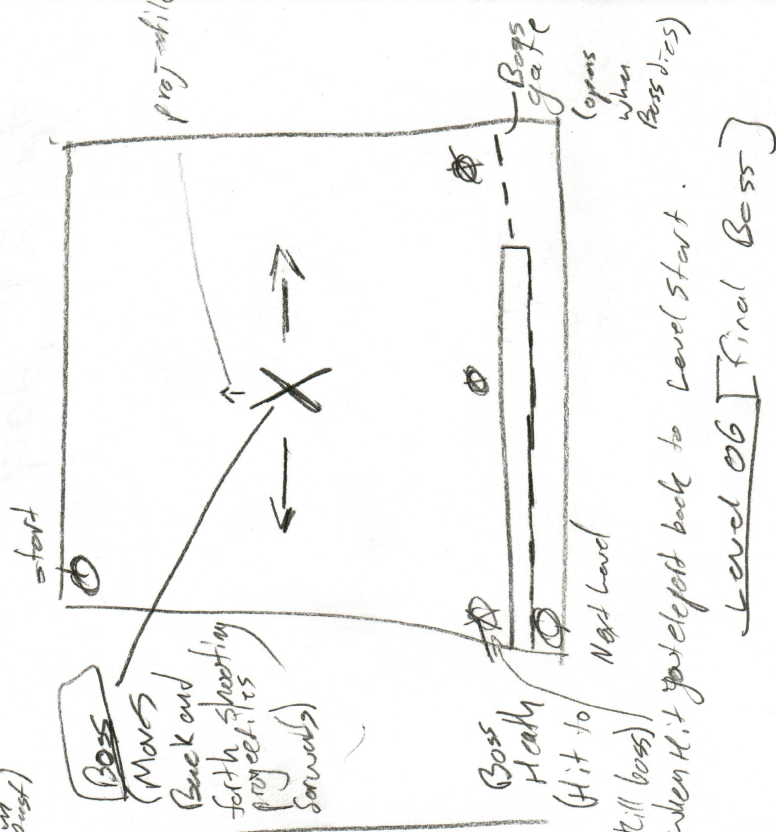 projectile
start
Boss
(Moves
Back and
forth shooting
projectiles
forwards)
Boss
gate
(opens
when
Boss dies)
Boss
Heath
(Hit to
Kill boss)
Next Level
when Hit you teleport back to Level Start.
Level 06 [Final Boss]